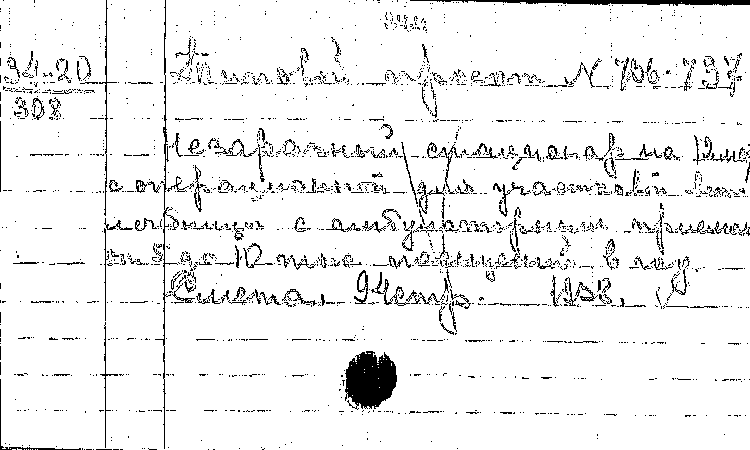 94-20
308
Типовой проект N 706-797
Незаразный стационар на 12 мес
с операционной для участковой вет
лечебницы с амбулаторным приемом
от 5 до 10 тыс посещений в год.
Смета. 94стр. 1958.